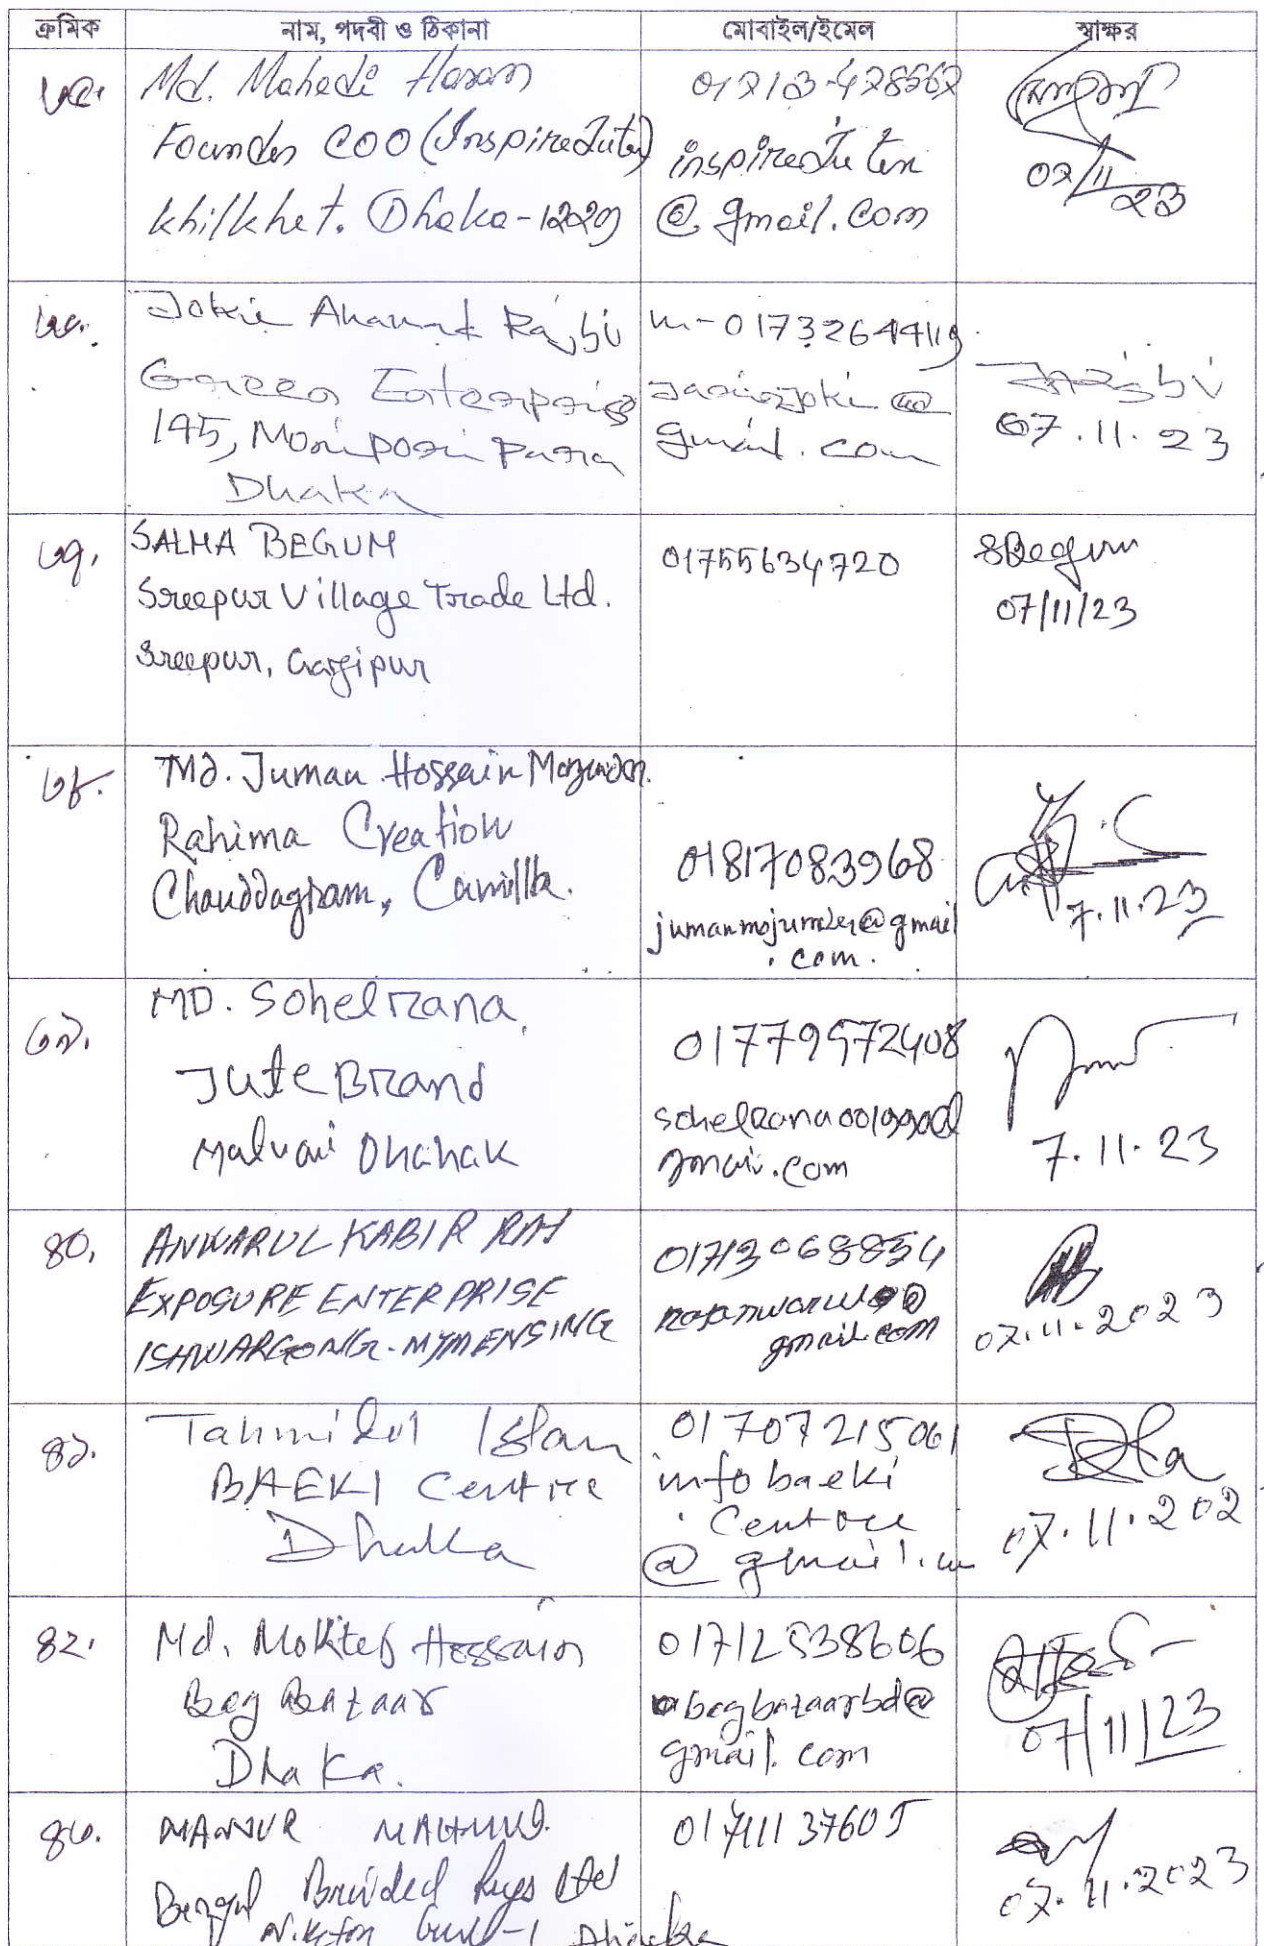 ক্রমিক নাম, পদবী ও ঠিকানা মোবাইল/ইমেল স্বাক্ষর
৩৫.
Md. Mahedi Hasan
Founder COO (InspireJuten)
Khilkhet. Dhaka-1229
inspireJuten
@gmail.com
07/11/23
৩৬.
Jokie Ahamed Rajbi
Green Enterprise
145, Monipori Para
Dhaka
M-01732644119
@
gmail.com
07.11.23
৩৭.
SALMA BEGUM
Sreepur Village Trade Ltd.
Sreepur, Gazipur
01755634720
SBegum
07/11/23
৩৮.
Md. Juman Hossain
Rahima Creation
Chauddagram, Comilla.
01817083968
jumanmojumder@gmail
.com.
7.11.23
৩৯.
MD. Sohel Rana,
Jute Brand
Dhahak
01779572408
gmai.com
7.11.23
৪০.
ANWARUL KABIR
EXPOSURE ENTERPRISE
ISHWARGONG-MYMENSING
01713068854
gmail.com
07.11.2023
৪১.
Tahmidul Islam
BAEKI Centre
Dhaka
01707215061
infobaeki
Centre
@gmail.
07.11.202
৪২.
Md. Mokter Hossain
Bag Bazaar
Dhaka.
01712538606
bagbazaarbd@
gmail.com
07/11/23
৪৩.
MANJUR MAHMUD.
Bengal Braided Rugs Ltd
Niketon Gul-1 Dhaka
01711137605
07.11.2023